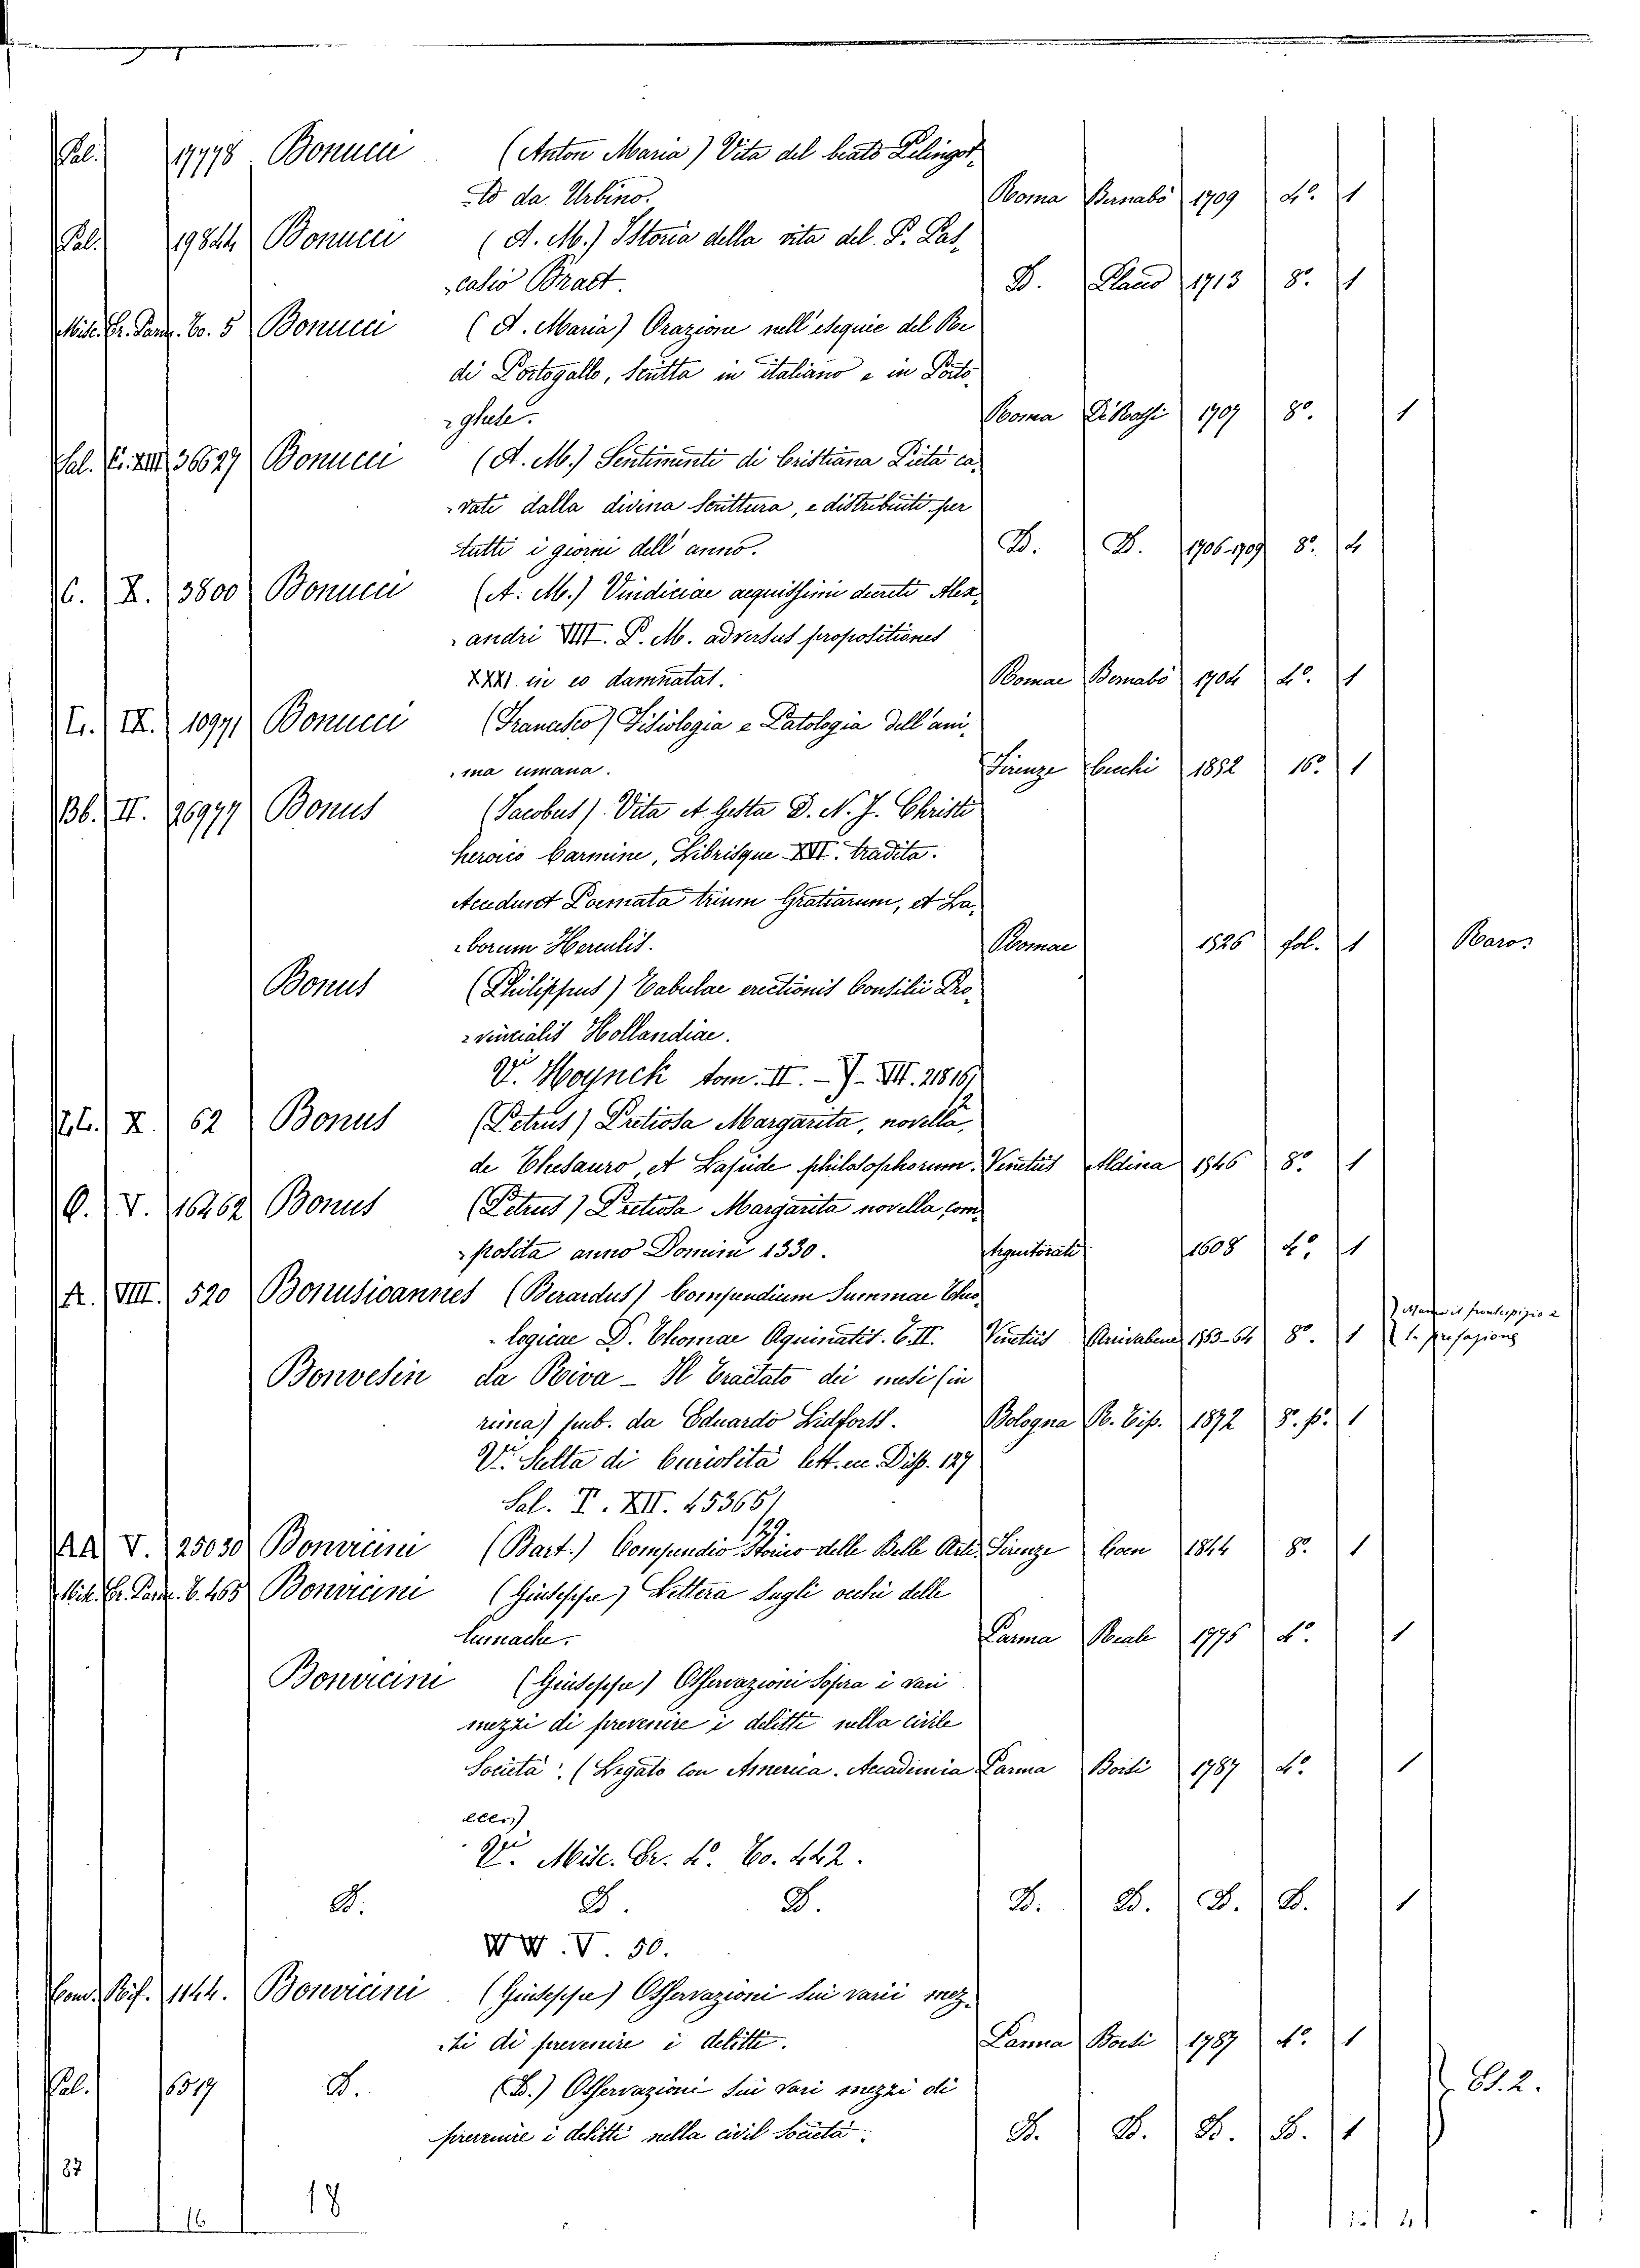 Pal. 17778 Bonucci (Anton Maria) Vita del beato Pelingot,
to da Urbino. Roma Bernabò 1709 4°. 1
Pal. 19844 Bonucci (A. M.) Istoria della vita del P. Pas,
casio Bract. D. Plaus 1713 8°. 1
Misc. Er. Parm. to. 5 Bonucci (A. Maria) Orazione nell'esequie del Re
di Portogallo, scritta in italiano e in Porto,
ghese. Roma De Rossi 1707 8°. 1
Sal. XIII 36627 Bonucci (A. M.) Sentimenti di Cristiana Pietà ca,
vati dalla divina Scrittura, e distribuiti per
tutti i giorni dell'anno. D. D. 1706-1709 8°. 4
C. X. 3800 Bonucci (A. M.) Vindiciae aequissimi decreti Alex,
andri VIII. P. M. adversus propositiones
XXXI. in eo damnatas. Romae Bernabò 1704 4°. 1
IX. 10971 Bonucci (Francesco) Fisiologia e Patologia dell'ani,
ma umana. Firenze Cecchi 1852 16°. 1
Bb. II. 26977 Bonus (Jacobus) Vita et Gesta D. N. J. Christi
heroico Carmine, Librisque XVI. tradita.
Accedunt Poemata trium Gratiarum, et La,
borum Herculis. Romae 1526 fol. 1 Raro
Bonus (Philippus) Tabulae erectionis Consilii Pro,
vincialis Hollandiae.
V. Hoynck tom. II. - J. VII. 21816
X. 62 Bonus (Petrus) Pretiosa Margarita, novella,
de Thesauro, et Lapide philosophorum. Venetiis Aldina 1546 8°. 1
V. 16262 Bonus (Petrus) Pretiosa Margarita novella com,
posita anno Domini 1330. Argentorati 1608 4°. 1
A. VIII. 520 Bonusioannes (Berardus) Compendium Summae Theo,
logicae D. Thomae Aquinatis. T. II. Venetiis Arrivabene 1563-64 8°. 1 Manca il frontespizio e la prefazione
Bonvesin da Riva - Il Tractato dei mesi (in
rima) pub. da Eduardo Lidforss. Bologna R. Tip. 1872 8°. p. 1
V. Scelta di Curiosità lett. ec. Disp. 127
Sal. T. XII. 45365/129
AA V. 25030 Bonvicini (Bart.) Compendio Storico delle Belle Arti Firenze 1844 8°. 1
Misc. Er. Parm. t. 465 Bonvicini (Giuseppe) Lettera sugli occhi delle
lumache. Parma Reale 1795 4°. 1
Bonvicini (Giuseppe) Osservazioni sopra i vari
mezzi di prevenire i delitti nella civile
Società. (Legato con America. Accademia Parma Borsi 1787 4°. 1
ecc.)
V. Misc. Er. 4°. to. 442.
D. D. D. D. D. D. D. 1
WW. V. 50.
Com. Rif. 1144. Bonvicini (Giuseppe) Osservazioni sui varii mez,
zi di prevenire i delitti. Parma Borsi 1787 4°. 1
Pal. 6519 D. (D.) Osservazioni sui vari mezzi di
prevenire i delitti nella civil Società. D. D. D. D. 1
Es. 2.
27
16 18